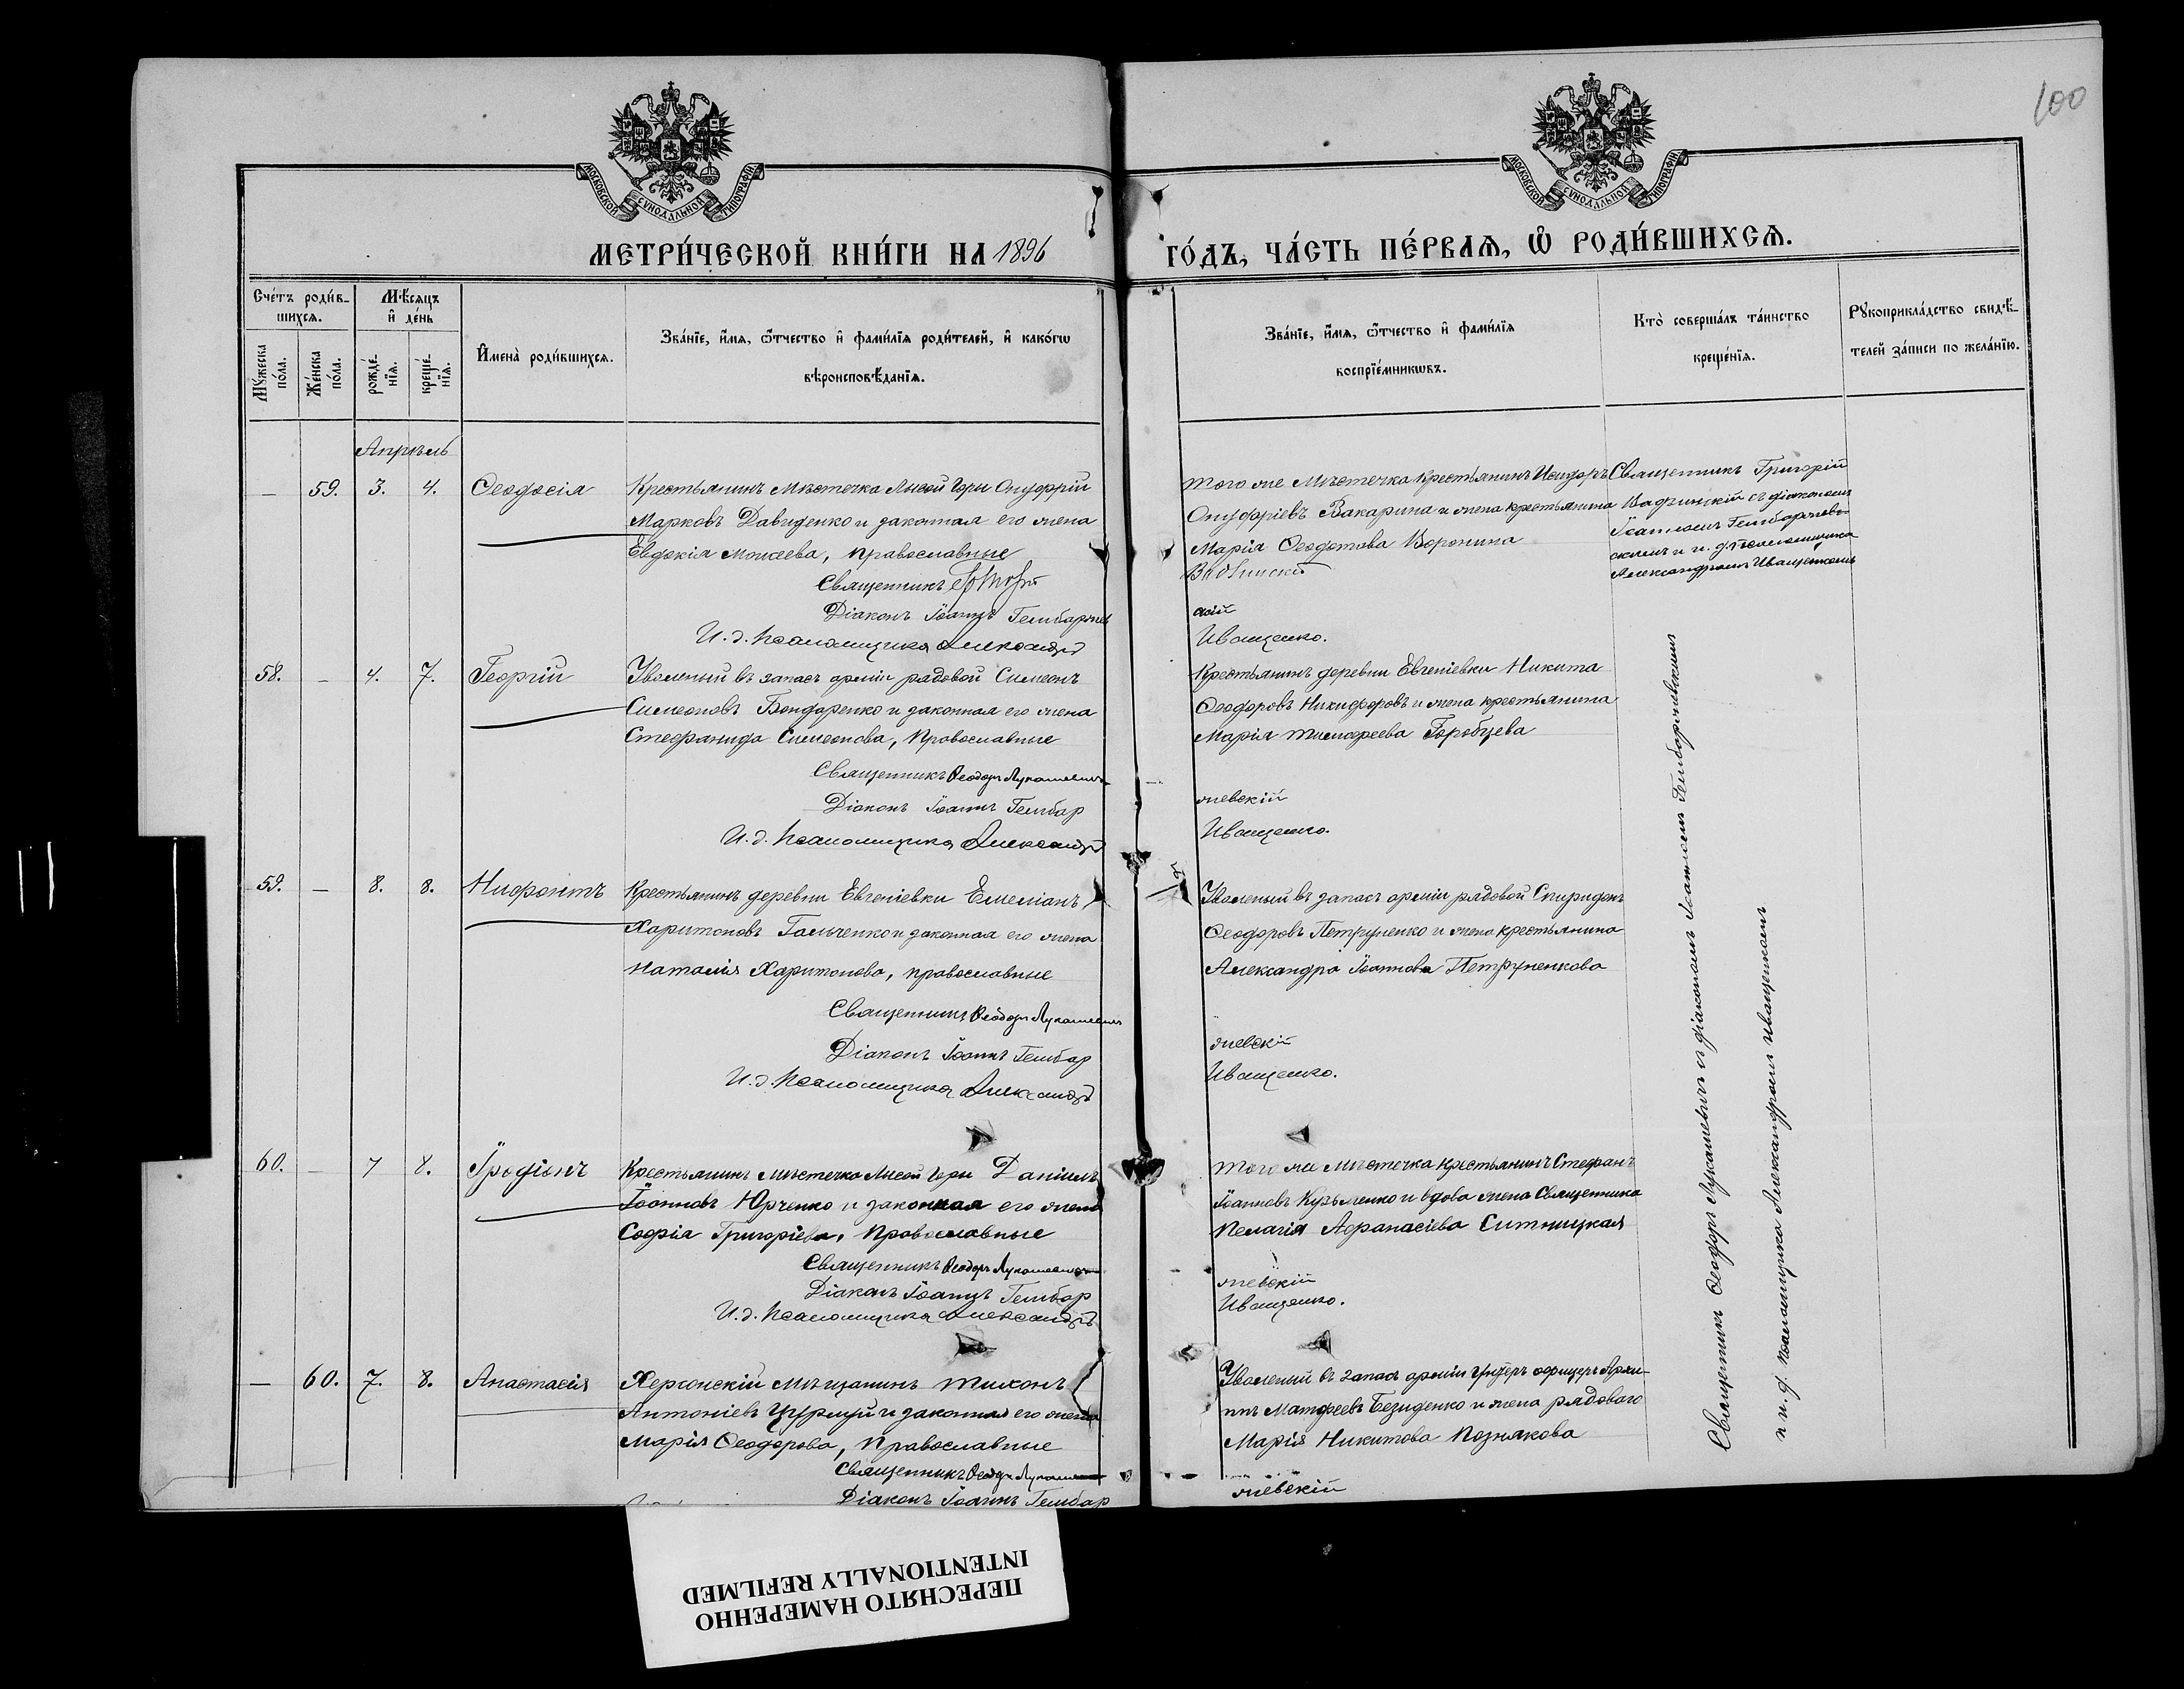 100
МОСКОВСКОЙ СѴНОДАЛЬНОЙ ТИПОГРАФІИ
МОСКОВСКОЙ СѴНОДАЛЬНОЙ ТИПОГРАФІИ
МЕТРИ́ЧЕСКОЙ КНИ́ГИ НА 1896
ГО́ДЪ, ЧА́СТЬ ПЕ́РВАѦ, Ѽ РОДИ́ВШИХСѦ.
Сче́тъ роди́в-
шихсѧ.
Мѣ́сѧцъ
и҆ де́нь
Мꙋ́жеска
по́ла.
Же́нска
по́ла.
рожде́-
нїѧ.
креще́-
нїѧ.
И҆мена̀ роди́вшихсѧ.
Зва́нїе, и҆́мѧ, ѻ҆́тчество и҆ фами́лїѧ роди́телей, и҆ како́гѡ
вѣроисповѣ́данїѧ.
Зва́нїе, и҆́мѧ, ѻ҆́тчество и҆ фами́лїѧ
воспрїе́мникѡвъ.
Кто̀ соверша́лъ та́инство
креще́нїѧ.
Рꙋкоприкла́дство свидѣ́-
телей за́писи по жела́нїю.
Апрѣль
— 59. 3. 4. Ѳеодосія
Крестьянинъ Мѣстечка Лысой Горы Онуфрій
Марковъ Давиденко и законная его жена
Евдокія Моисеева, православные
Священникъ Григорій
Діаконъ Іоаннъ Гембаржев
И.д. Псаломщика Александръ
того же Мѣстечка крестьянинъ Исидоръ
Онуфріевъ Вакарина и жена крестьянина
Марія Ѳеодотова Воронина
скій
Иващенко.
Священникъ Григорій
съ діакономъ
Іоанномъ Гембаржев-
скимъ и и. д. псаломщика
Александромъ Иващенкомъ
58. — 4. 7. Георгій
Уволеный въ запасъ арміи рядовой Симеонъ
Симеоновъ Бондаренко и законная его жена
Стефанида Симеонова, Православные
Священникъ Ѳеодоръ Лукашевичъ
Діаконъ Іоаннъ Гембар
И.д. Псаломщика Александръ
Крестьянинъ деревни Евгеніевки Никита
Ѳеодоровъ Никифоровъ и жена крестьянина
Марія Тимофеева Горобцева
жевскій
Иващенко.
59. — 8. 8. Нифонтъ
Крестьянинъ деревни Евгеніевки Емеліанъ
Харитоновъ Гальченко и законная его жена
Наталія Харитонова, православные
Священникъ Ѳеодоръ Лукашевичъ
Діаконъ Іоаннъ Гембар
И.д. Псаломщика Александръ
Уволеный въ запасъ арміи рядовой Спиридонъ
Ѳеодоровъ Петруненко и жена крестьянина
Александра Іоаннова Петруненкова
жевскій
Иващенко.
60. — 7 8. Іродіонъ
Крестьянинъ Мѣстечка Лысой Горы Даніилъ
Іоанновъ Юрченко и законная его жена
Софія Григоріева, Православные
Священникъ Ѳеодоръ Лукашевичъ
Діаконъ Іоаннъ Гембар
И.д. Псаломщика Александръ
того же Мѣстечка крестьянинъ Стефанъ
Іоанновъ Кузьменко и вдова жена Священника
Пелагія Афанасіева Ситницкая
жевскій
Иващенко.
— 60. 7. 8. Анастасія
Херсонскій Мѣщанинъ Тихонъ
Антоніевъ и законная его жена
Марія Ѳеодорова, Православные
Священникъ Ѳеодоръ Лукашевичъ
Діаконъ Іоаннъ Гембар
Уволеный въ запасъ арміи унтеръ офицеръ Архи-
ппъ Матфеевъ Безиденко и жена рядового
Марія Никитова Познякова
жевскій
Священникъ Ѳеодоръ Лукашевичъ съ діакономъ Іоанномъ Гембаржевскимъ
и и. д. псаломщика Александромъ Иващенкомъ
ПЕРЕСНЯТО НАМЕРЕННО
INTENTIONALLY REFILMED